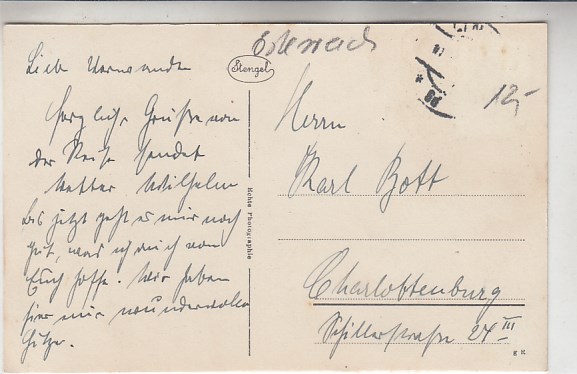 Lieb Verwandten
Herzliche Grüße von
der Reise sendet
Vetter Wilhelm
Bis jetzt geht es mir noch
gut, was ich auch von
Euch hoffe. Wir haben
hier nur wundervolle
Hitze.
Stengel
Echte Photographie
Österreich
12,-
Herrn
Karl Bott
Charlottenburg
Schillerstraße 24 III